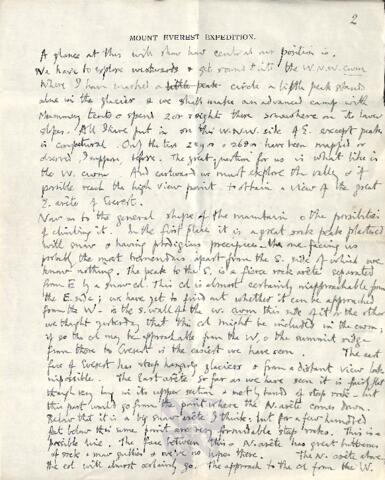 2
MOUNT EVEREST EXPEDITION.
A glance at this will show how central our position is.
We have to explore westwards & get round & into the W.N.W. cwm
where I have marked a little peak circle a little peak stands
alone in the glacier & we shall make an advanced camp with
Mummery tents & spend 2 or 3 nights there somewhere on its lower
slopes. All I have put in on the W.N.W. side of E. except peak
is conjectural. Only the
observed I suppose before. The great question for us is what like is
the W. cwm. And eastward we must explore the valley & if
possible reach the high view point & obtain a view of the great
E. arête of Everest.
Now as to the general shape of the mountain & the possibilities
of climbing it. In the first place it is a great rock peak plastered
with snow & having prodigious precipices - the one facing us
probably the most tremendous apart from the S. side of which we
know nothing. The peak to the S. is a fierce rock arête separated
from E by a snow col. This col is almost certainly inapproachable from
the E. side; we have yet to find out whether it can be approached
from the W. is the S. wall of the W. cwm this side of it or the other
we thought yesterday that this col might be included in the cwm;
if so the col may be approachable from the W, & the summit ridge
from there to Everest is the easiest we have seen. The east
face of Everest has steep hanging glaciers & from a distant view looks
impossible. The East arête so far as we have seen it is fairly flat
though very long in its upper section & not by hands of steep rock - but
this part would go from the point where the N. arête comes down.
Below that it is a big snow arête I think, but for a few hundred
feet below this same point are very formidable steep rocks. This is a
possible line. The face between this & N. arête has great buttresses
of rock & snow gullies & we've no hopes there. The N. arête above
the col will almost certainly go. The approach to the col from the W.